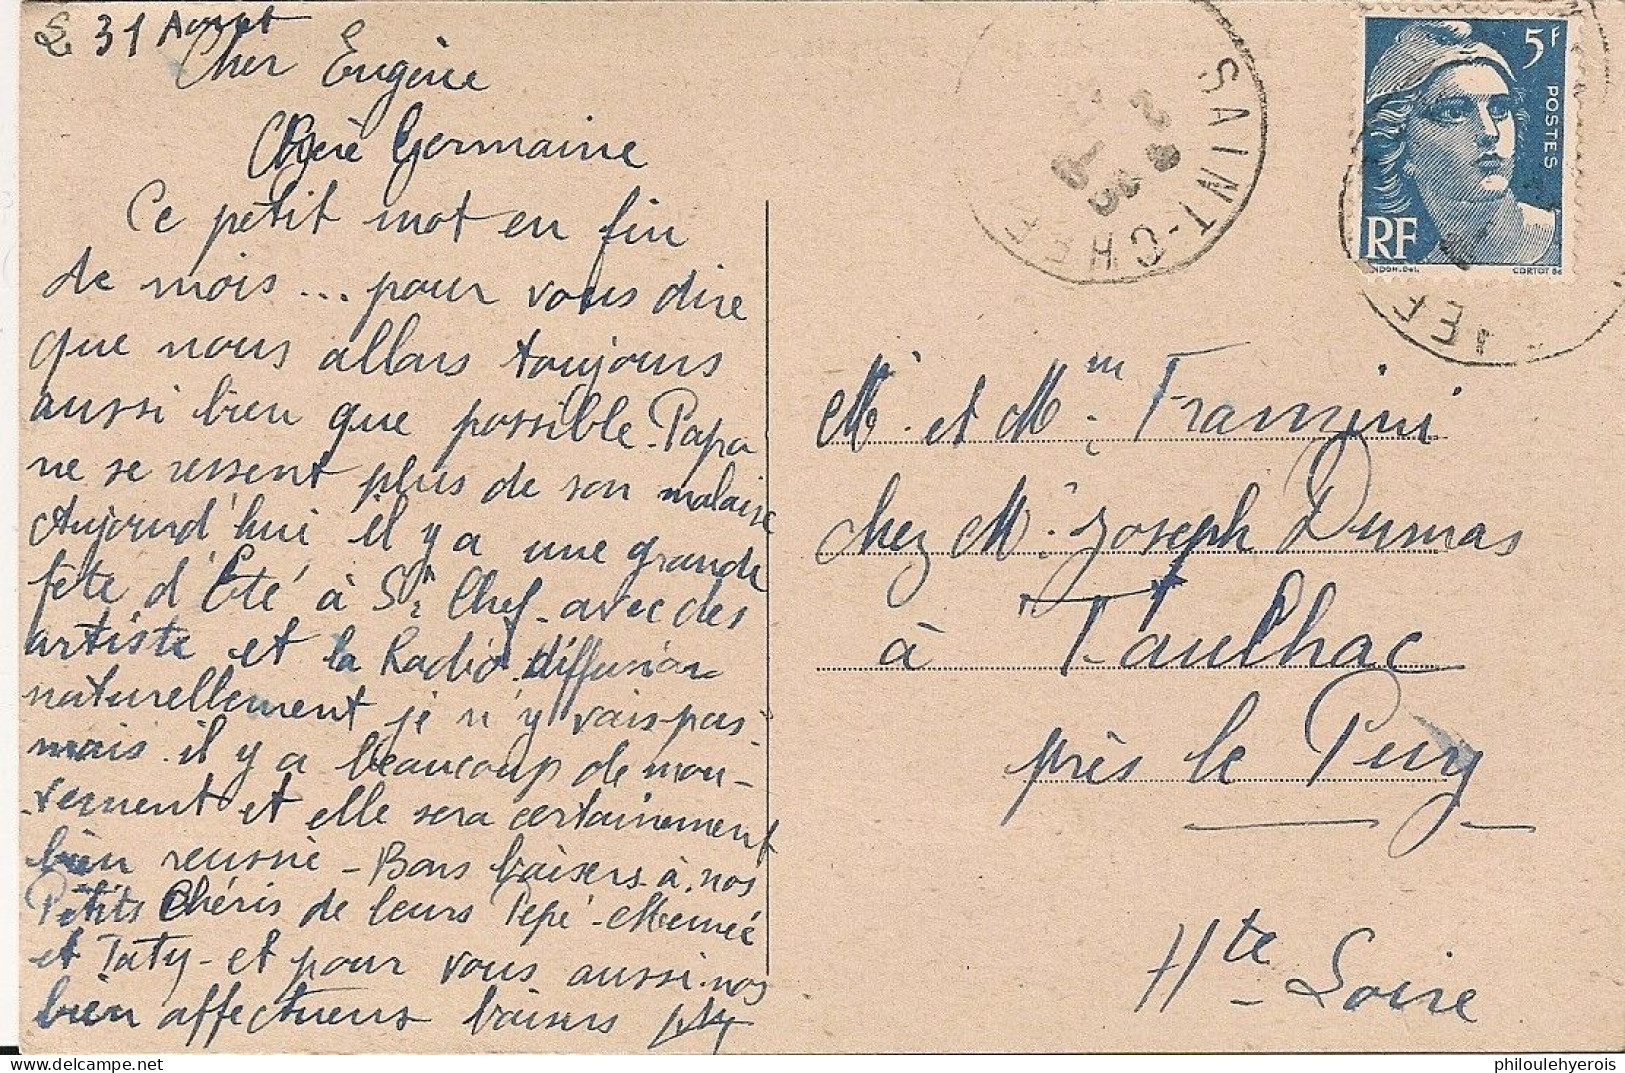 31 Aout
Cher Eugène
Chère Germaine
Ce petit mot en fin
de mois... pour vous dire
que nous allons toujours
aussi bien que possible - Papa
ne se ressent plus de son malaise
Aujourd'hui il y a une grande
fête d'Eté à St Chef - avec des
artiste et la Radio diffusion
naturellement je n'y vais pas -
mais il y a beaucoup de mou-
vement et elle sera certainement
bien reussie - Bons baisers à nos
Petits Chéris de leurs Pépé - Mémée
et Taty - et pour vous aussi nos
bien affectueux baisers
SAINT-CHEF
5F
POSTES
RF
CORTOT SC
M. et Mm. Framini
chez M. Joseph Dumas
à Taulhac
près le Puy
Hte - Loire
philoulehyerois